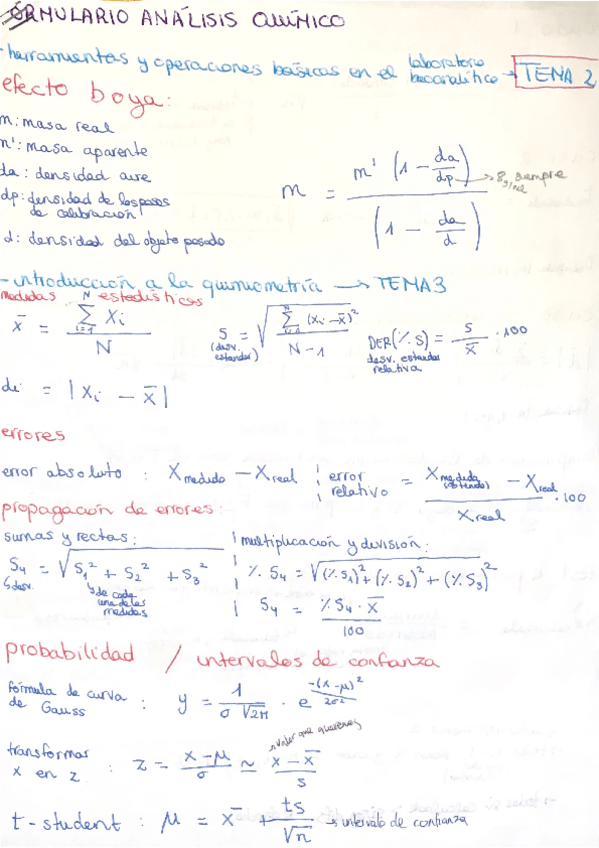 FORMULARIO ANÁLISIS QUÍMICO
- herramientas y operaciones básicas en el laboratorio bioanalítico → TEMA 2
efecto boya:
m: masa real
m': masa aparente
da: densidad aire
dp: densidad de las pesas de calibración
d: densidad del objeto pesado
m = m' (1 - da/dp) / (1 - da/d) → 8 g/mL siempre
- introducción a la quimiometría → TEMA 3
medidas estadísticas
x̄ = Σ(i=1, N) Xi / N
s (desv. estandar) = √(Σ(i=1, N) (xi - x̄)² / N-1)
DER (% s) = s / x̄ · 100
desv. estandar relativa
di = |Xi - x̄|
errores
error absoluto : Xmedido - Xreal
error relativo = Xmedida (obtenido) - Xreal / Xreal · 100
propagación de errores:
sumas y restas:
S4 = √S1² + S2² + S3²
↳ desv.
↳ de cada una de las medidas
multiplicación y división:
% S4 = √(% S1)² + (% S2)² + (% S3)²
S4 = % S4 · x̄ / 100
probabilidad / intervalos de confianza
fórmula de curva de Gauss : y = 1 / σ √2π · e^(-(x-μ)² / 2σ²)
transformar x en z : z = x-μ / σ ≃ x - x̄ / s → valor que queremos
t-student : μ = x̄ ± ts / √n → intervalo de confianza